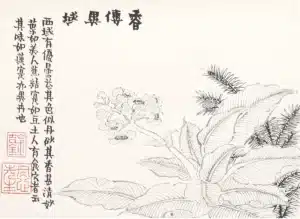 香傳異域
西域有優曇花其色似丹砂其香甚清妙
葉如美人蕉結實如豆土人有食之者云
其味如蓮實亦異卉也